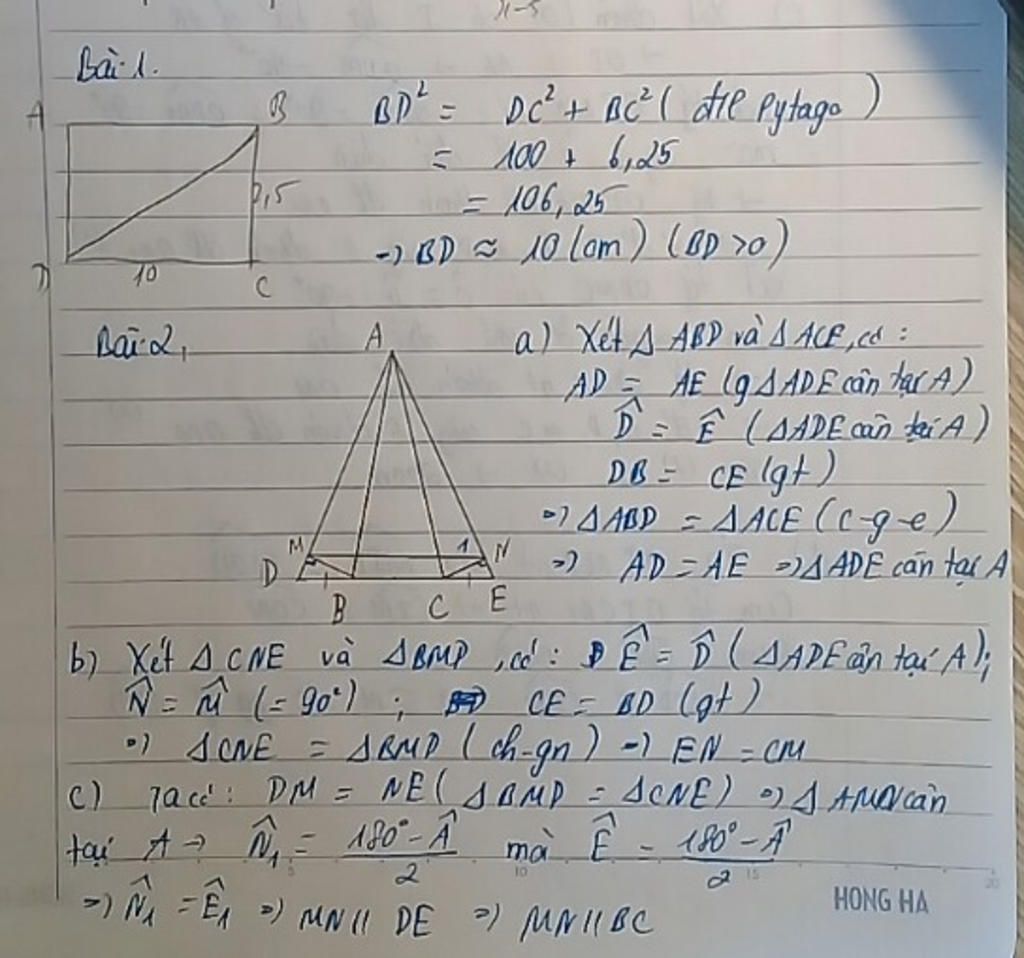 Bài 1.
A B
2,5
D 10 C
BD² = DC² + BC² ( đlí Pytago )
= 100 + 6,25
= 106,25
→ BD ≈ 10 (cm) ( BD >0)
Bài 2,
A
M 1 N
D B C E
a) Xét Δ ABD và Δ ACE, có :
AD = AE (g ΔADE cân tại A)
D̂ = Ê ( ΔADE cân tại A )
DB = CE (gt)
=> ΔABD = ΔACE ( c-g-c)
=> AD = AE => ΔADE cân tại A
b) Xét Δ CNE và ΔBMD , có : Ê = D̂ ( ΔADE cân tại A);
N̂ = M̂ (= 90°) ; CE = BD (gt)
=> ΔCNE = ΔBMD ( ch-gn) → EN = CM
c) Ta có : DM = NE ( ΔBMD = ΔCNE) => Δ AMN cân
tại A → N̂₁ = (180° - Â)/2 mà Ê = (180° - Â)/2
=> N̂₁ = Ê₁ => MN // DE => MN // BC
5 10 15 20
HONG HA